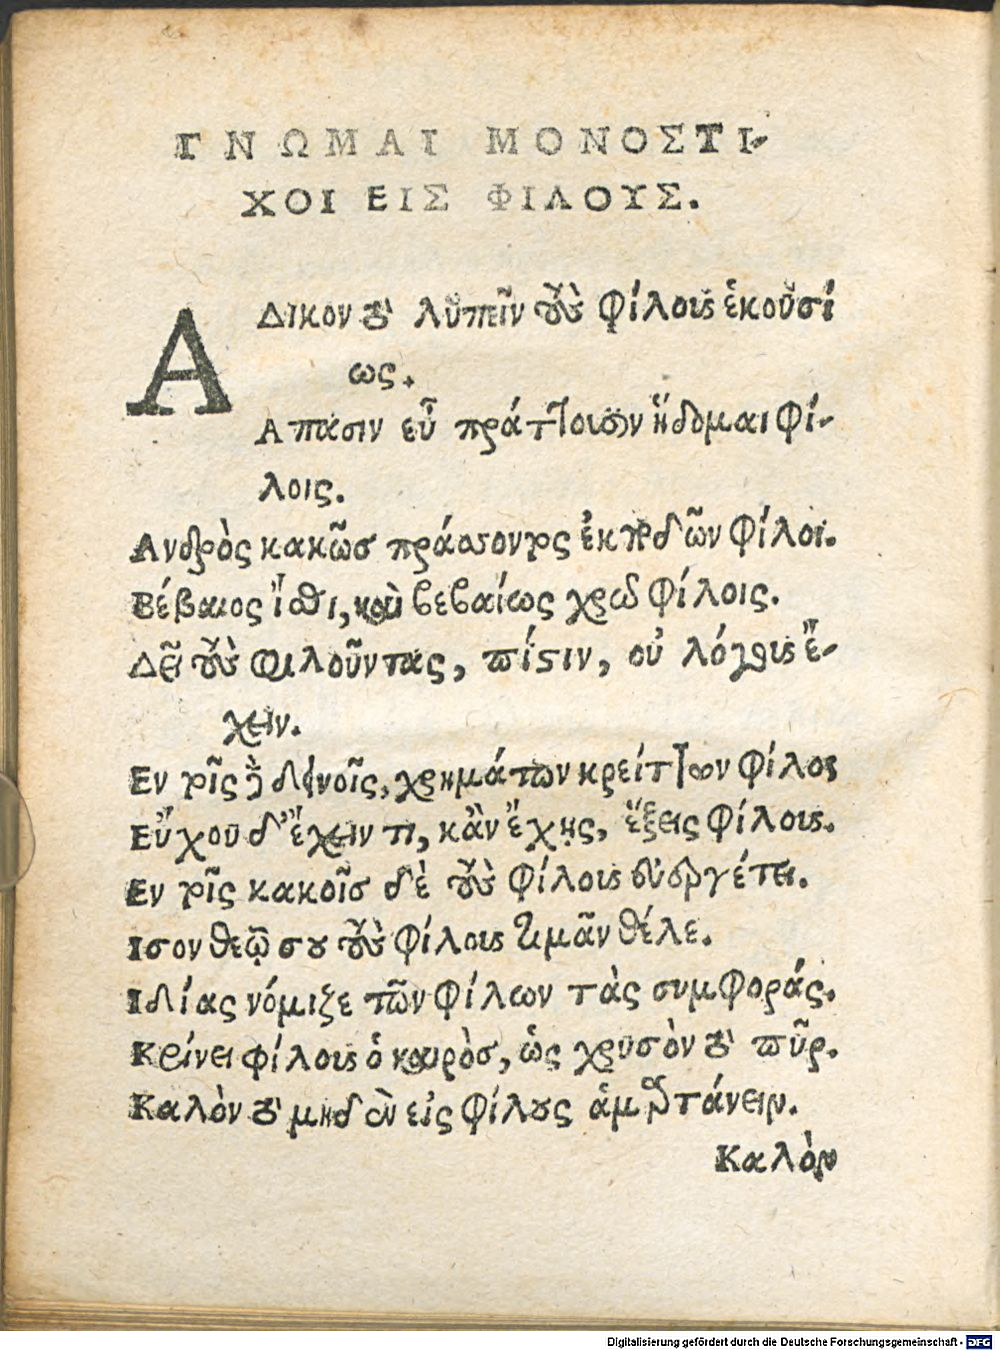 ΓΝΩΜΑΙ ΜΟΝΟΣΤΙ-
ΧΟΙ ΕΙΣ ΦΙΛΟΥΣ.
ΑΔικον τὸ λυπεῖν τοὺς φίλους ἑκουσί
ως.
Απασιν εὖ πράττουσιν ἥδομαι φί-
λοις.
Ανδρὸς κακῶσ πράσσοντος ἐκποδῶν φίλοι.
Βέβαιος ἴσθι, καὶ βεβαίως χρῶ φίλοις.
Δεῖ τοὺς φιλοῦντας, πίστιν, οὐ λόγους ἔ-
χειν.
Εν τοῖς δεινοῖς, χρημάτων κρείττων φίλος
Εὔχου δ' ἔχειν τι, κἂν ἔχῃς, ἕξεις φίλους.
Εν τοῖς κακοῖσ δὲ τοὺς φίλους εὐεργέτει.
Ισον θεῷ σου τοὺς φίλους τιμᾶν θέλε.
Ιδίας νόμιζε τῶν φίλων τὰς συμφοράς.
Κρίνει φίλους ὁ καιρὸσ, ὡς χρυσὸν τὸ πῦρ.
Καλὸν τὸ μηδὲν εἰς φίλους ἁμαρτάνειν.
Καλὸν
Digitalisierung gefördert durch die Deutsche Forschungsgemeinschaft - DFG